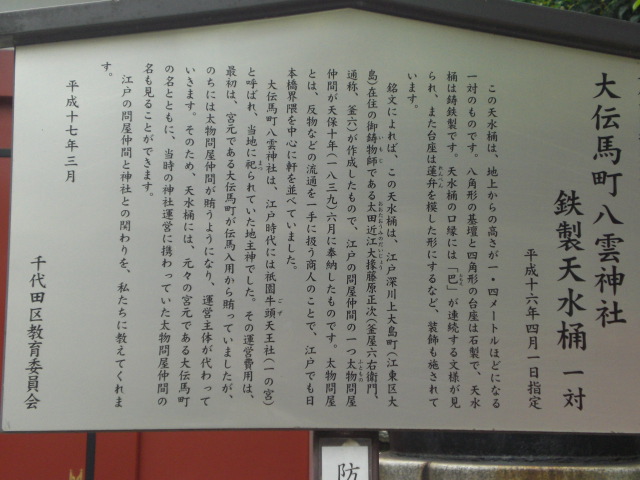 大伝馬町八雲神社
鉄製天水桶 一対
平成十六年四月一日指定
この天水桶は、地上からの高さが一・四メートルほどになる
一対のものです。八角形の基壇と四角形の台座は石製で、天水
桶は鋳鉄製です。天水桶の口縁には「巴」が連続する文様が見
られ、また台座は蓮弁を模した形にするなど、装飾も施されて
います。
銘文によれば、この天水桶は、江戸深川上大島町(江東区大
島)在住の御鋳物師である太田近江大掾藤原正次(釜屋六右衛門、
通称、釜六)が作成したもので、江戸の問屋仲間の一つ太物問屋
仲間が天保十年(一八三九)六月に奉納したものです。太物問屋
とは、反物などの流通を一手に扱う商人のことで、江戸でも日
本橋界隈を中心に軒を並べていました。
大伝馬町八雲神社は、江戸時代には祇園牛頭天王社(一の宮)
と呼ばれ、当地に祀られていた地主神でした。その運営費用は、
最初は、宮元である大伝馬町が伝馬入用から賄っていましたが、
のちには太物問屋仲間が賄うようになり、運営主体が代わって
いきます。そのため、天水桶には、元々の宮元である大伝馬町
の名とともに、当時の神社運営に携わっていた太物問屋仲間の
名も見ることができます。
江戸の問屋仲間と神社との関わりを、私たちに教えてくれま
す。
平成十七年三月
千代田区教育委員会
防